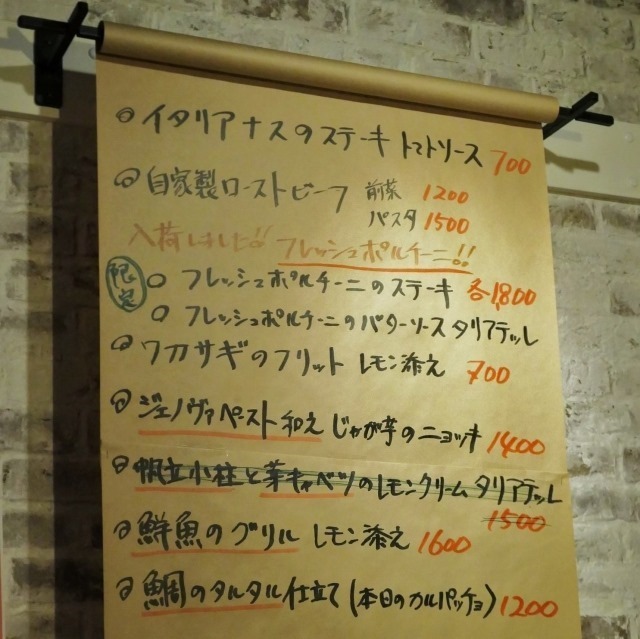 イタリアナスのステーキ トマトソース 700
自家製ローストビーフ 前菜 1200
パスタ 1500
入荷しました!! フレッシュポルチーニ!!
限定
フレッシュポルチーニのステーキ 各1,800
フレッシュポルチーニのバターソース タリアテッレ
ワカサギのフリット レモン添え 700
ジェノヴァペースト和え じゃが芋のニョッキ 1400
帆立小柱と芽キャベツのレモンクリーム タリアテッレ
1500
鮮魚のグリル レモン添え 1600
鯛のタルタル仕立て (本日のカルパッチョ) 1200